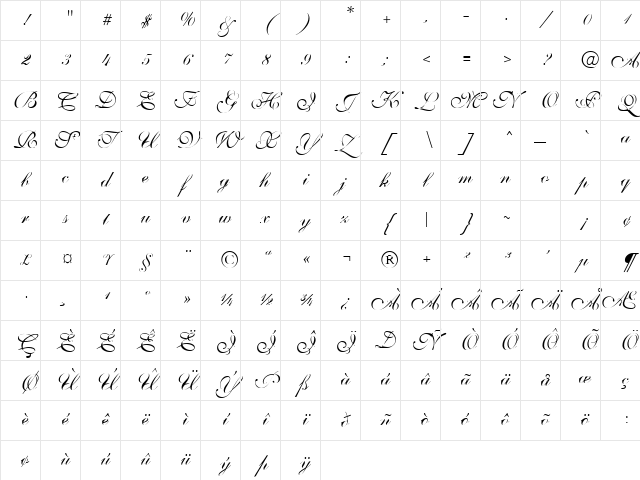 ! " # $ % & ( ) * + , - . / 0 1
2 3 4 5 6 7 8 9 : ; < = > ? @ A
B C D E F G H I J K L M N O P Q
R S T U V W X Y Z [ \ ] ^ _ ` a
b c d e f g h i j k l m n o p q
r s t u v w x y z { | } ~ ¡ ¢
£ ¤ ¥ § ¨ © ª « ¬ ® + ² ³ ´ µ ¶
· ¸ ¹ º » ¼ ½ ¾ ¿ À Á Â Ã Ä Å Æ
Ç È É Ê Ë Ì Í Î Ï Ð Ñ Ò Ó Ô Õ Ö
Ø Ù Ú Û Ü Ý Þ ß à á â ã ä å æ ç
è é ê ë ì í î ï ð ñ ò ó ô õ ö :
ø ù ú û ü ý þ ÿ